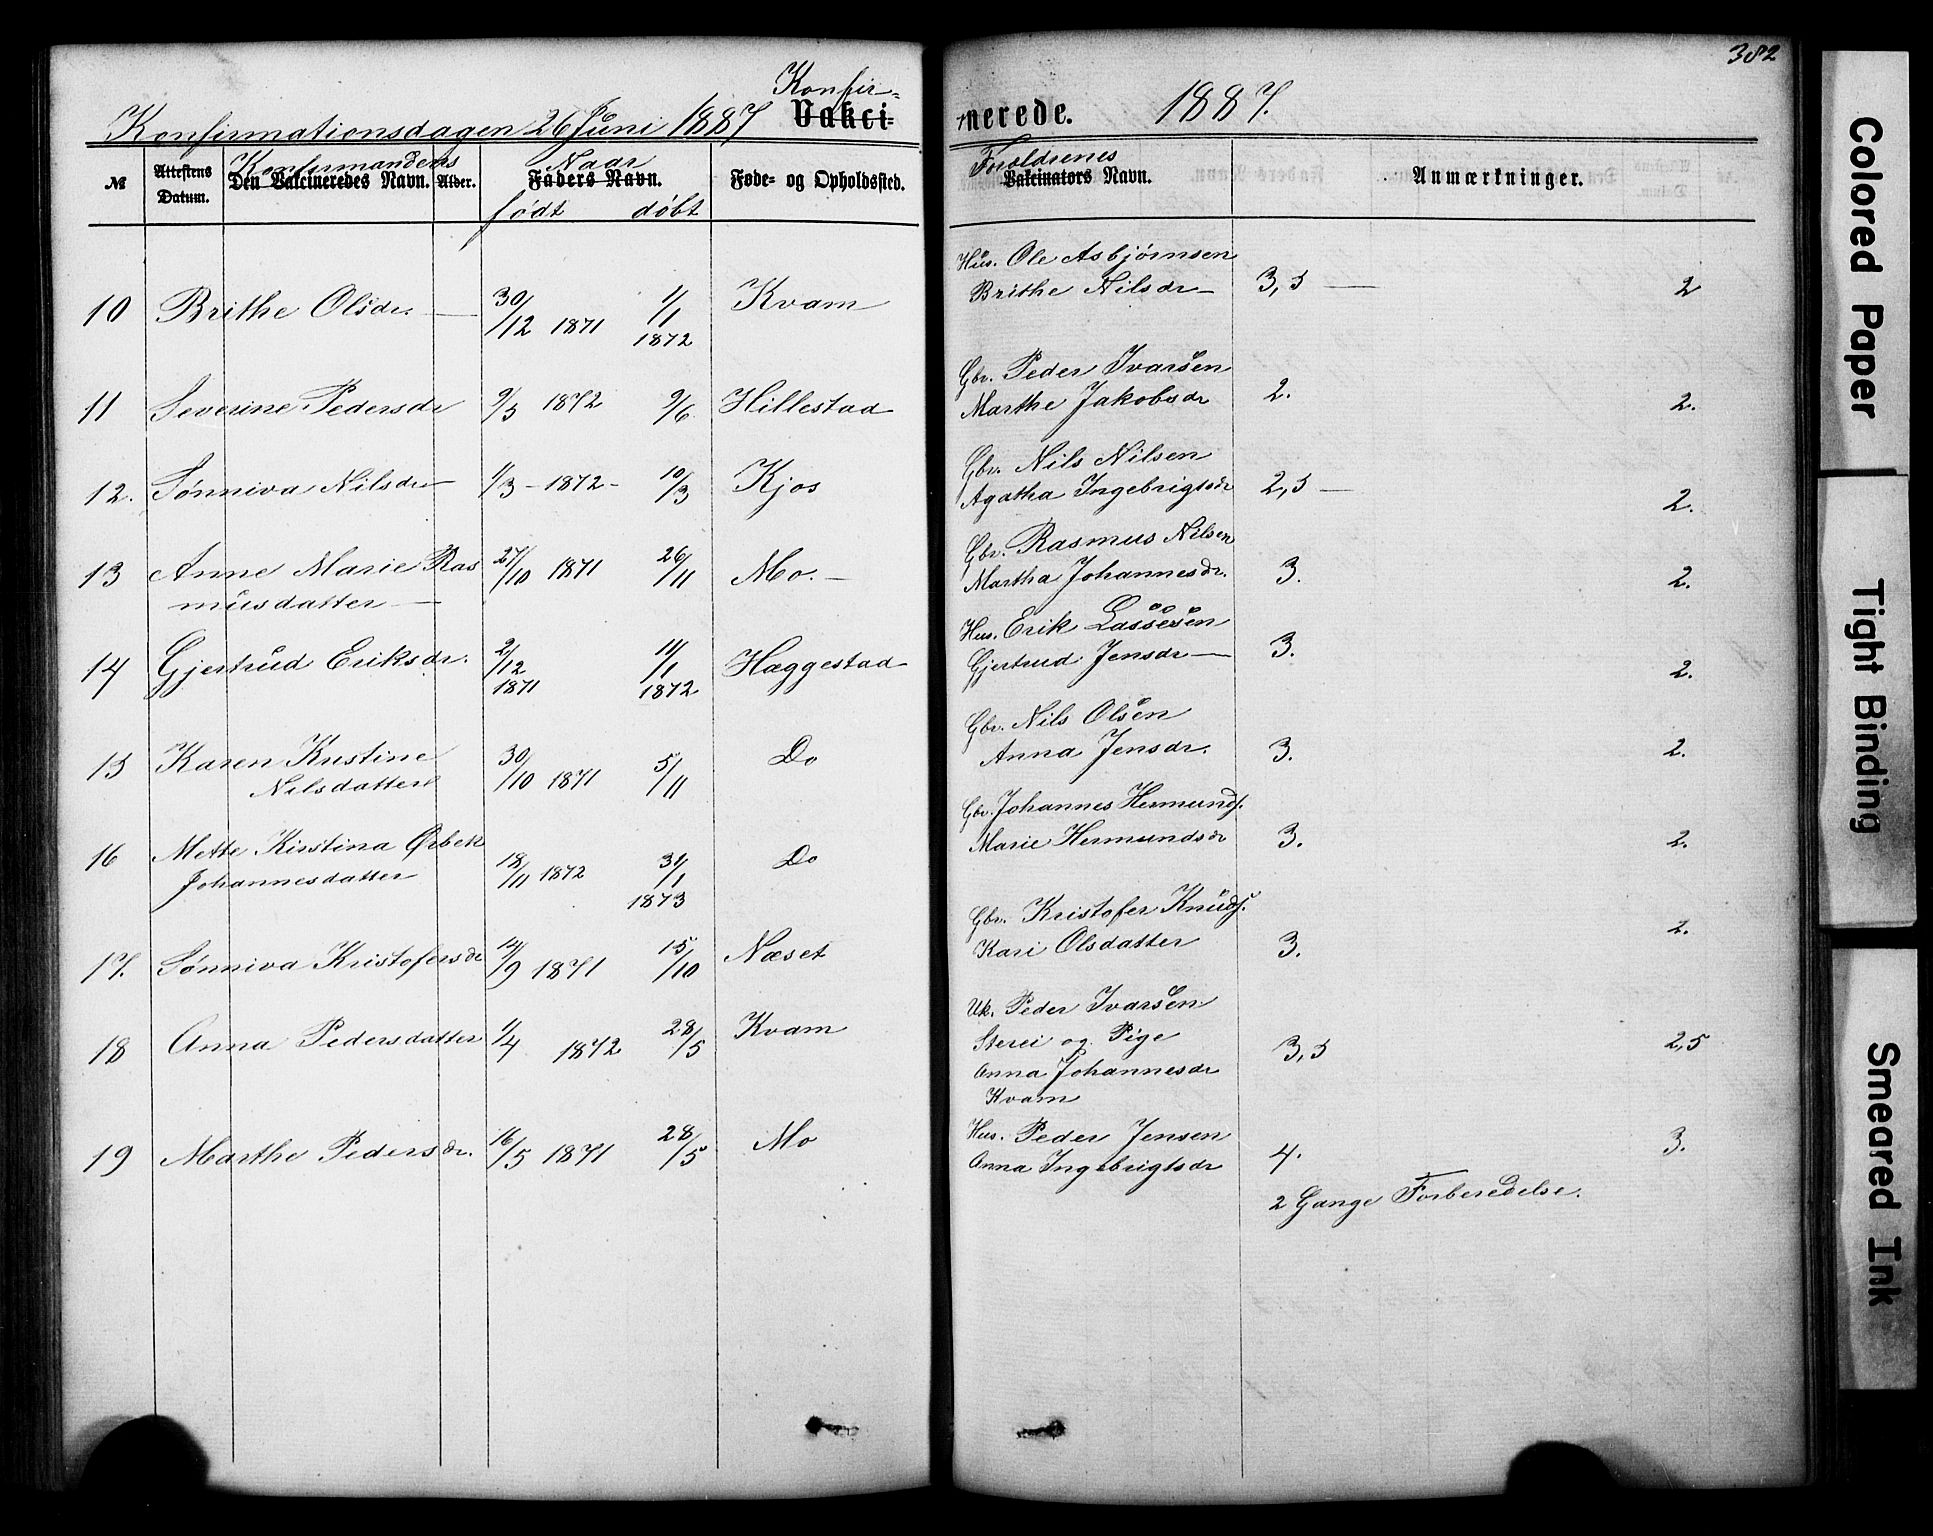 382
Konfir-
Konfirmationsdagen 26 Juni 1887 Vakci-
nerede. 1887.
№ Attestens Datum. Konfirmandens Den Vakcineredes Navn. Alder. Naar Faders Navn. født døbt Føde- og Opholdssted.
Foreldrenes Vakcinators Navn. Anmærkninger.
10 Brithe Olsdr. 30/12 1871 1/1 1872 Kvam
Hus. Ole Asbjørnsen
Brithe Nilsdr 3,5 2
11 Severine Pedersdr 9/5 1872 9/6 Hillestad
Gbr. Peder Ivarsen
Marthe Jakobsdr 2. 2.
12. Sønniva Nilsdr 1/3 - 1872 - 10/3 Kjos
Gbr. Nils Nilsen
Agatha Ingebrigtsdr 2,5 2.
13 Anne Marie Ras 27/10 1871 26/11 Mo.
musdatter
Gbr. Rasmus Nilsen
Martha Johannesdr. 3. 2.
14 Gjertrud Eriksdr. 2/12 1871 11/1 1872 Haggestad
Hus. Erik Lassesen
Gjertrud Jensdr 3. 2.
15 Karen Kristine 30/10 1871 5/11 Do
Nilsdatter
Gbr. Nils Olsen
Anna Jensdr. 3. 2.
16 Mette Kirstina Ørbek 18/11 1872 31/1 1873 Do
Johannesdatter
Gbr. Johannes Hermunds.
Marie Hermundsdr 3. 2.
17. Sønniva Kristofersdr 14/9 1871 15/10 Næset
Gbr. Kristofer Knuds.
Kari Olsdatter 3. 2.
18 Anna Pedersdatter 1/4 1872 28/5 Kvam
Uk. Peder Ivarsen
Sterei og Pige
Anna Johannesdr
Kvam 3,5 2,5
19 Marthe Pedersdr. 16/5 1871 28/5 Mo
Hus. Peder Jensen
Anna Ingebrigtsdr 4. 3.
2 Gange Forberedelse.
Colored Paper
Tight Binding
Smeared Ink